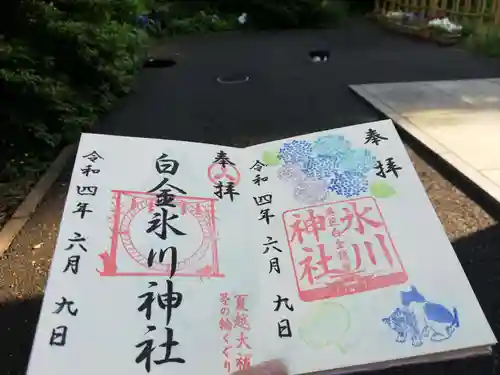 奉拝
白金氷川神社
令和四年六月九日
夏越大祓
茅の輪くぐり
奉拝
令和四年六月九日
氷川
神社